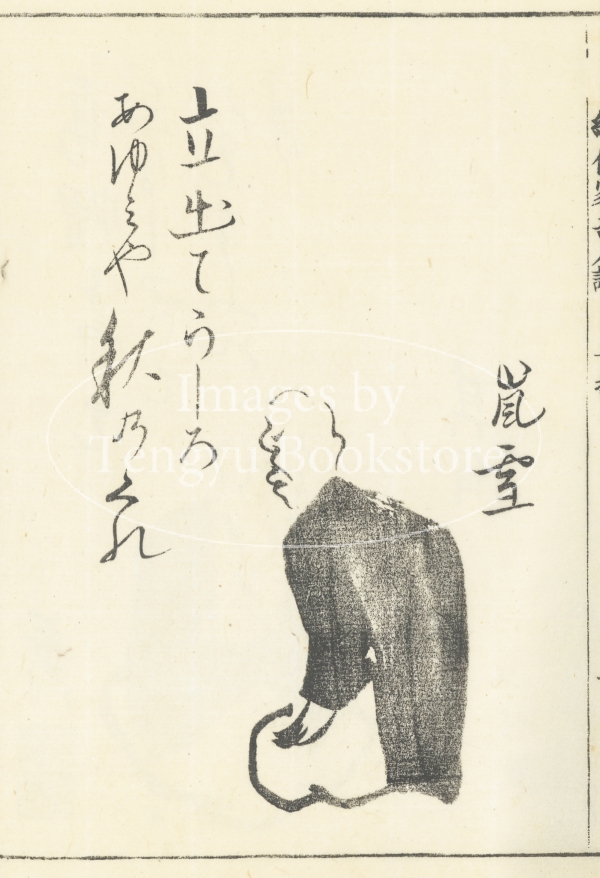 嵐雪
立出てうしろ
あゆミや秋乃くれ
Images by
Tengyu Bookstore